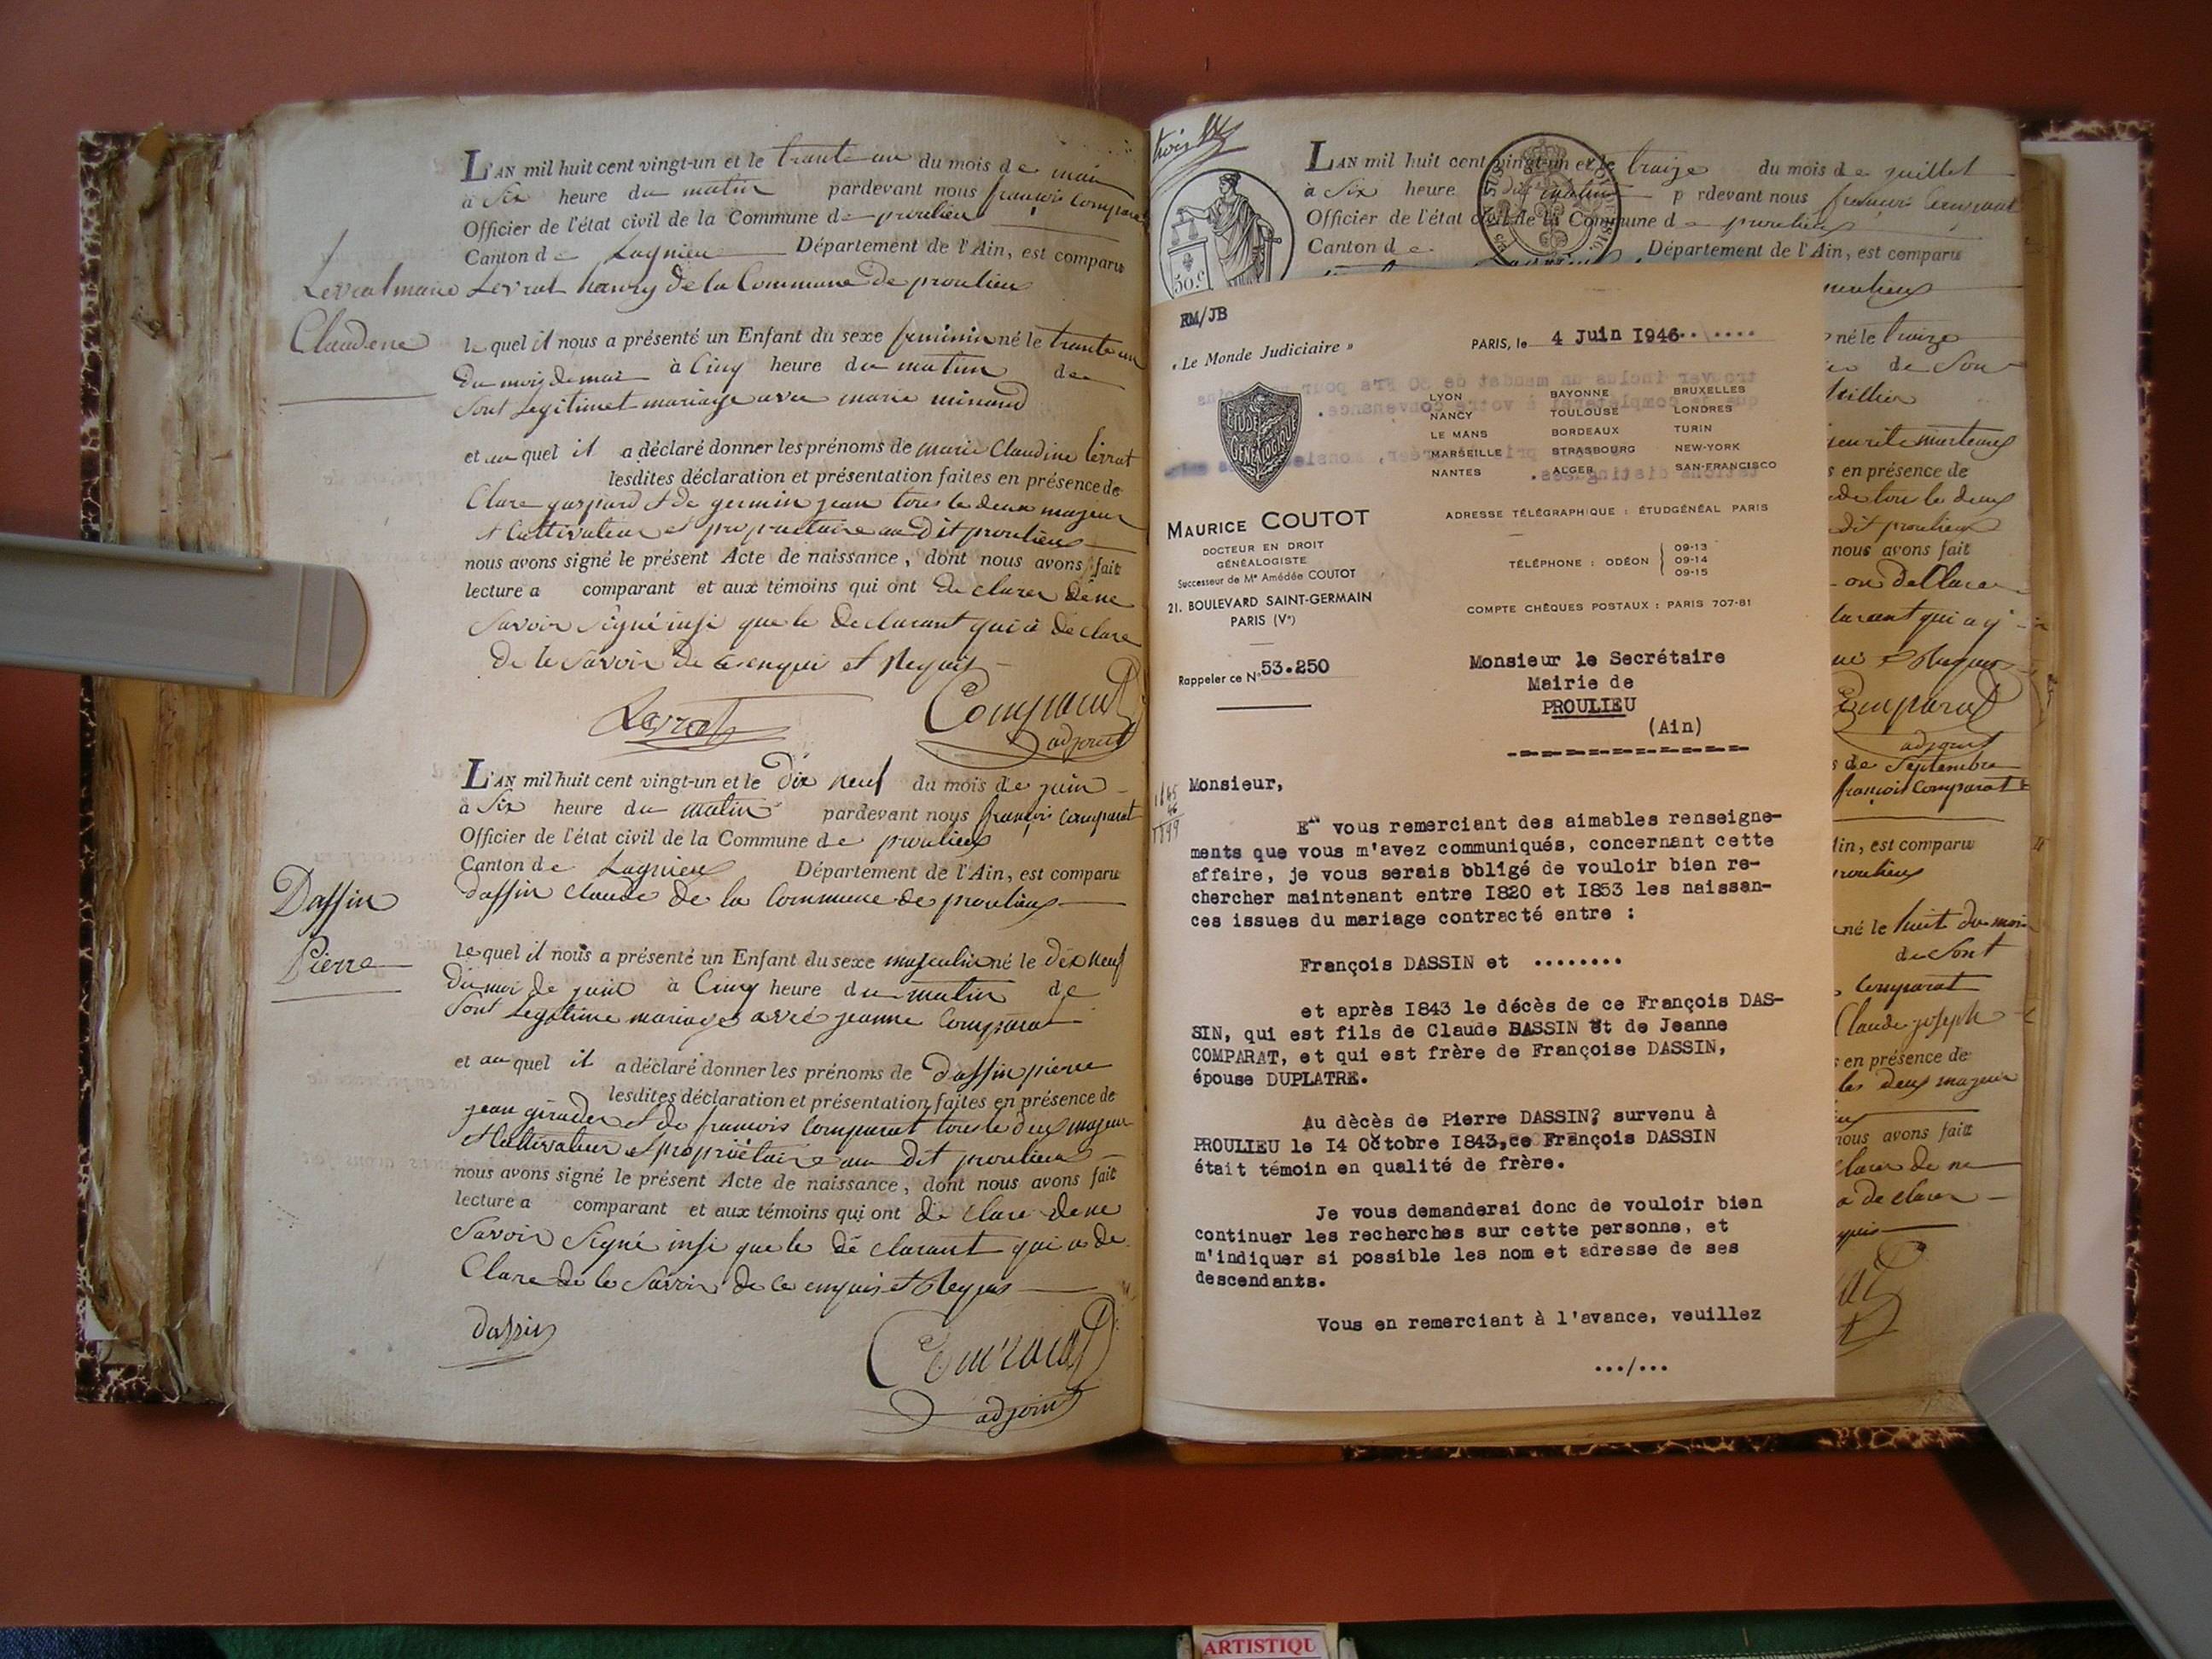 L'AN mil huit cent vingt-un et le trante un du mois de mai
à Six heure du matin pardevant nous françois Comparat
Officier de l'état civil de la Commune de proulieu
Canton de Lagnieu Département de l'Ain, est comparu
Levrat marie
Claudene
Levrat hanry de la Commune de proulieu
le quel il nous a présenté un Enfant du sexe feminin né le trante un
Du mois de mai à Cinq heure du matin de
Sont Legitimet mariage avec marie minand
et au quel il a déclaré donner les prénoms de marie Claudine Levrat
lesdites déclaration et présentation faites en présence de
Clare gaspard & de germin jean tous le deux majeur
& Cultivateur et propriaitaire au Dit proulieu
nous avons signé le présent Acte de naissance, dont nous avons fait
lecture a comparant et aux témoins qui ont de clarer de ne
Savoir Signé insi que le declarant qui à declare
De le Savoir de ce enqui et Requis
Levrat
Comparat
adjoint
L'AN mil huit cent vingt-un et le dix neuf du mois de juin
à Six heure du matin pardevant nous françois comparat
Officier de l'état civil de la Commune de proulieu
Canton de Lagnieu Département de l'Ain, est comparu
Dassin
Pierre
dassin claude de la Commune de proulieu
le quel il nous a présenté un Enfant du sexe masculin né le dix neuf
du moi de juin à Cinq heure du matin de
Sont Legitime mariage avec jeanne Comparat
et au quel il a déclaré donner les prénoms de dassin pierre
lesdites déclaration et présentation faites en présence de
jean girader & de francois Comparat tous le deux majeur
& Cultivateur et propriétaire au dit proulieu
nous avons signé le présent Acte de naissance, dont nous avons fait
lecture a comparant et aux témoins qui ont de clare de ne
Savoir Signé insi que le dé clarant qui a de
Clare de le Savoir de ce enquis et Requis
dassin
Comparat
adjoint
L'AN mil huit cent vingt-un et le traize du mois de juillet
à Six heure du matin p rdevant nous francois Comparat
Officier de l'état civil de la Commune de proulieu
Canton de Département de l'Ain, est comparu
50.c
RM/JB
« Le Monde Judiciaire »
PARIS, le 4 Juin I946
ETUDE GENEALOGIQUE
LYON BAYONNE BRUXELLES
NANCY TOULOUSE LONDRES
LE MANS BORDEAUX TURIN
MARSEILLE STRASBOURG NEW-YORK
NANTES ALGER SAN-FRANCISCO
ADRESSE TÉLÉGRAPHIQUE : ÉTUDGÉNÉAL PARIS
MAURICE COUTOT
DOCTEUR EN DROIT
GÉNÉALOGISTE
Successeur de Me Amédée COUTOT
21. BOULEVARD SAINT-GERMAIN
PARIS (Ve)
TÉLÉPHONE : ODÉON
09-13
09-14
09-15
COMPTE CHÈQUES POSTAUX : PARIS 707-81
Rappeler ce N° 53.250
Monsieur le Secrétaire
Mairie de
PROULIEU
(Ain)
Monsieur,
En vous remerciant des aimables renseigne-
ments que vous m'avez communiqués, concernant cette
affaire, je vous serais bbligé de vouloir bien re-
chercher maintenant entre I820 et I853 les naissan-
ces issues du mariage contracté entre :
François DASSIN et ........
et après I843 le décès de ce François DAS-
SIN, qui est fils de Claude DASSIN et de Jeanne
COMPARAT, et qui est frère de Françoise DASSIN,
épouse DUPLATRE.
Au dècès de Pierre DASSIN? survenu à
PROULIEU le I4 Octobre I843,ce François DASSIN
était témoin en qualité de frère.
Je vous demanderai donc de vouloir bien
continuer les recherches sur cette personne, et
m'indiquer si possible les nom et adresse de ses
descendants.
Vous en remerciant à l'avance, veuillez
.../...
né le traize
de Son
s en présence de
de tous les deux
dit proulieu
nous avons fait
on de Clare
larant qui a
Comparat
adjoint
s de Septembre
françois Comparat
Ain, est comparu
proulieu
né le huit du mois
de Sont
Comparat
Claude joseph
s en présence de
les deux majeur
nous avons fait
clarer de ne
a declarer
ARTISTIQU